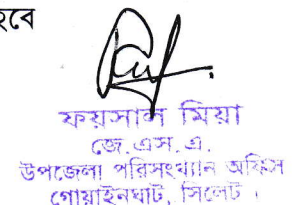 হবে
ফয়সাল মিয়া
জে.এস.এ.
উপজেলা পরিসংখ্যান অফিস
গোয়াইনঘাট, সিলেট ।